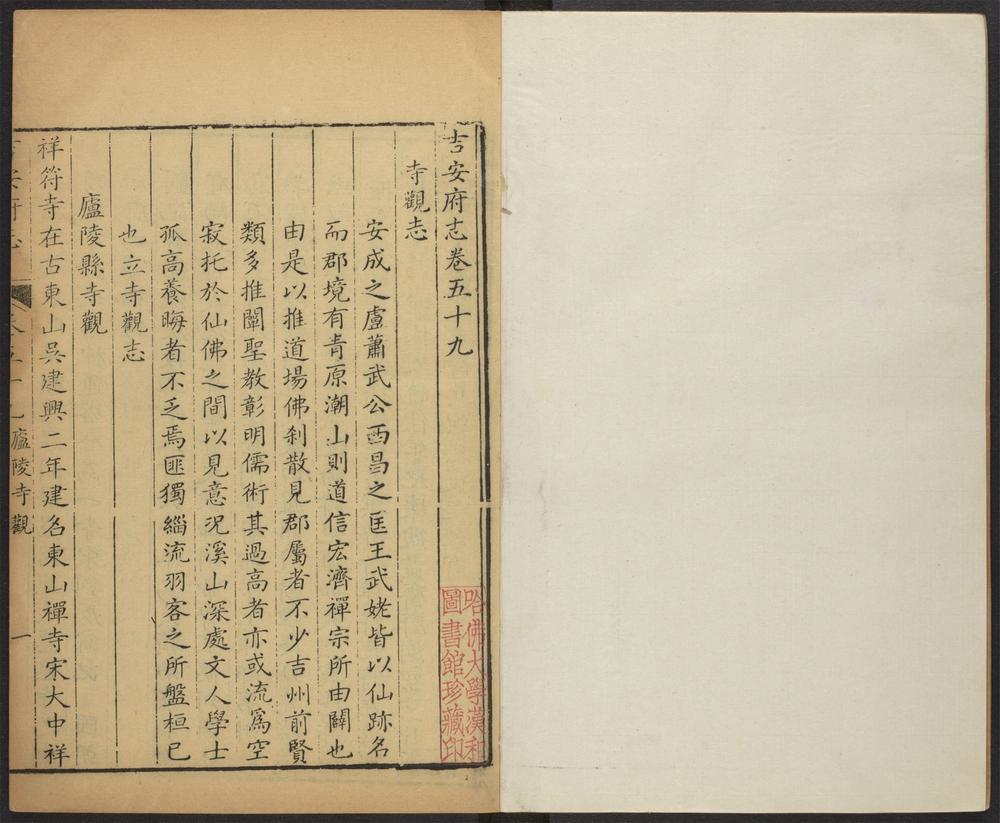 吉安府志卷五十九
寺觀志
安成之盧蕭武公西昌之匡王武姥皆以仙跡名
而郡境有青原潮山則道信宏濟禪宗所由闢也
由是以推道場佛刹散見郡屬者不少吉州前賢
類多推闡聖教彰明儒術其過高者亦或流爲空
寂托於仙佛之間以見意況溪山深處文人學士
孤高養晦者不乏焉匪獨緇流羽客之所盤桓已
也立寺觀志
廬陵縣寺觀
祥符寺在古東山吳建興二年建名東山禪寺宋大中祥
廬陵寺觀
一
哈佛大學漢和
圖書館珍藏印